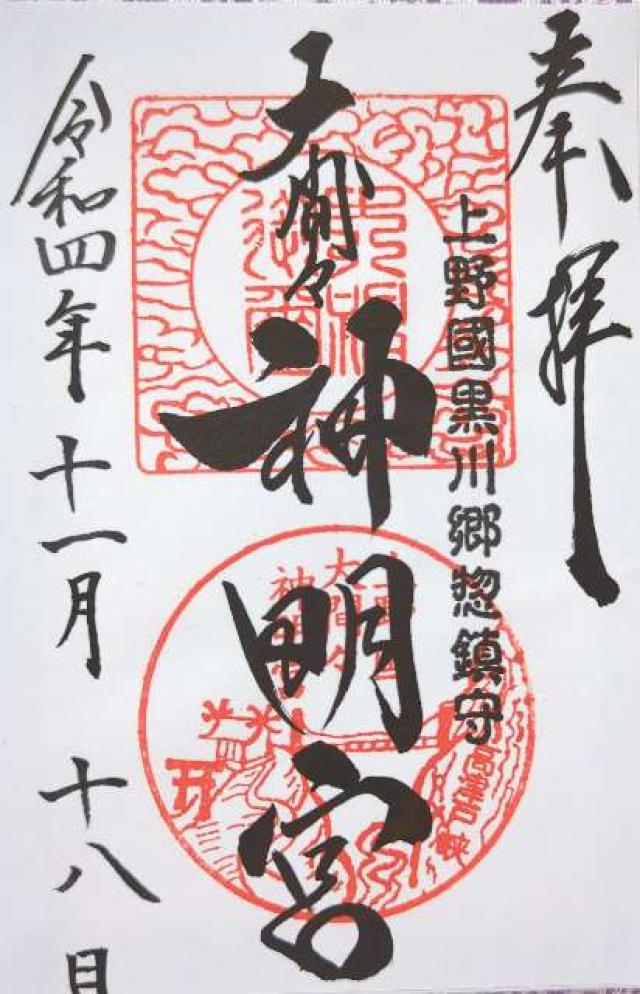 奉拝
上野國黒川郷惣鎮守
大間々神明宮
大間々
神明宮
高津戸峡
令和四年十一月十八日